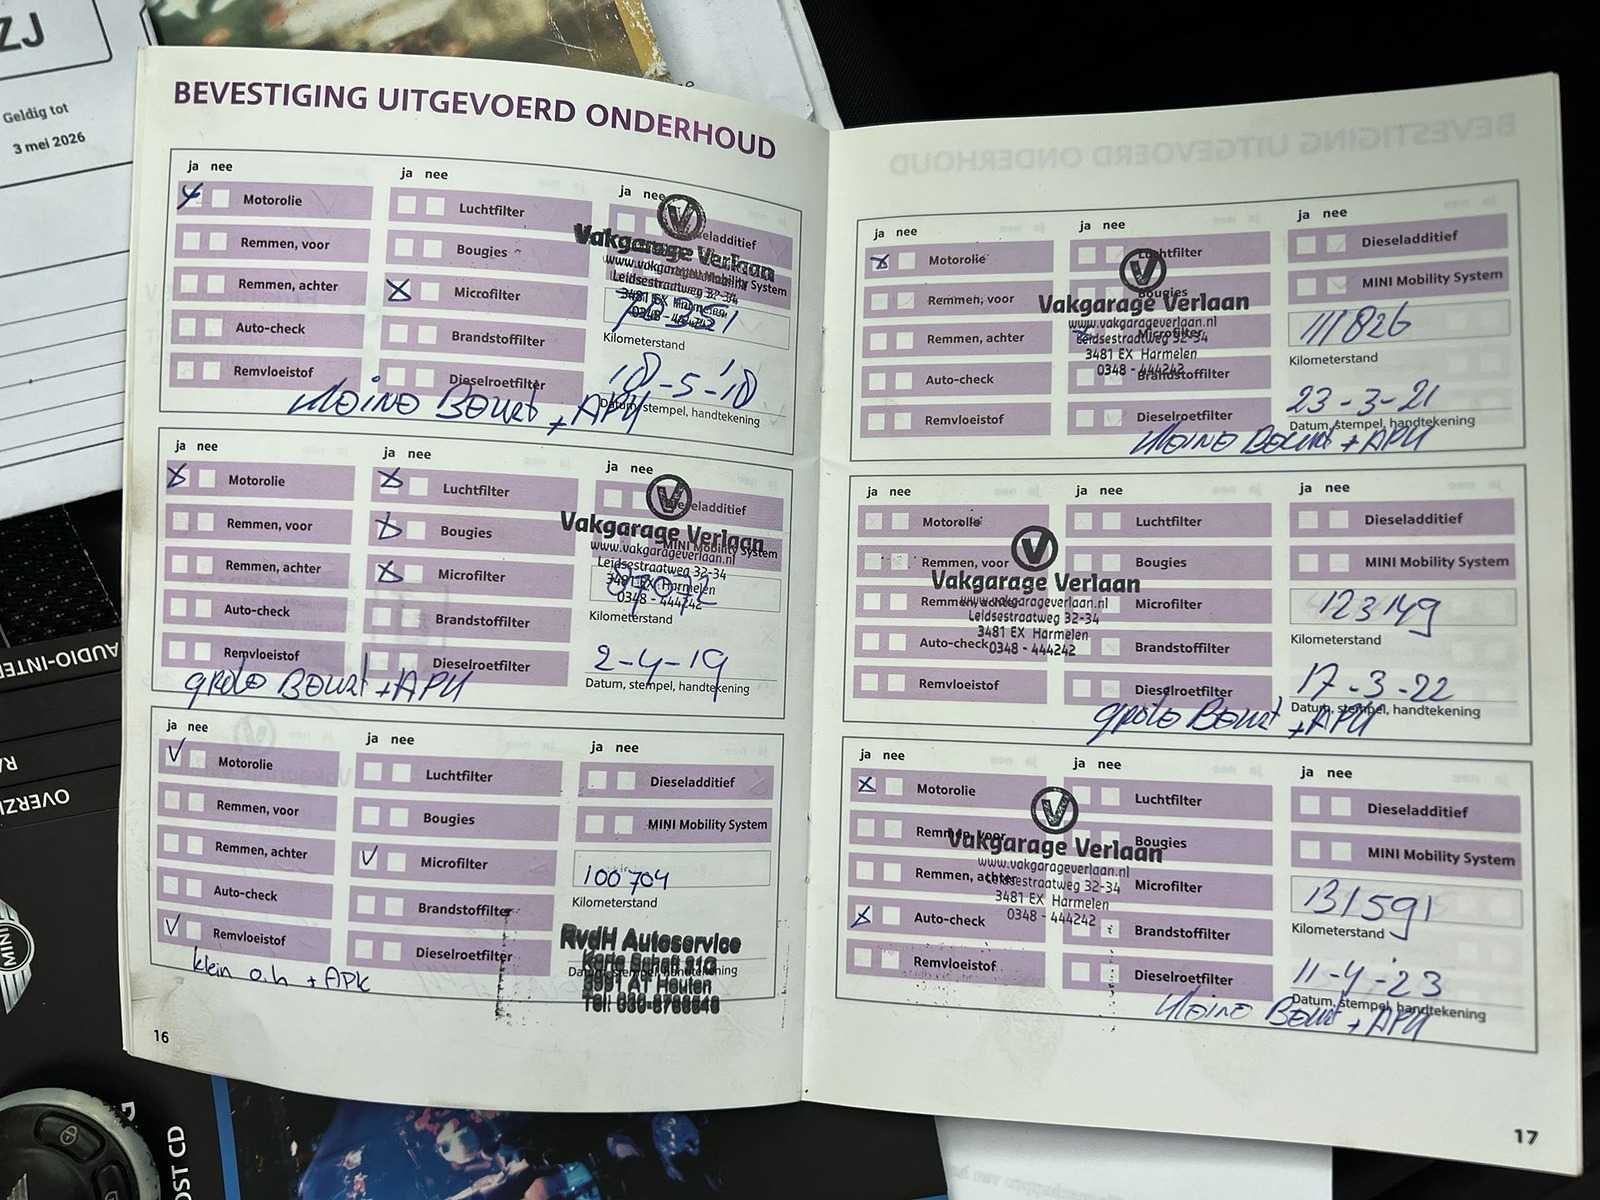 ZJ
Geldig tot
3 mei 2026
BEVESTIGING UITGEVOERD ONDERHOUD
ja nee
ja nee
ja nee
Motorolie
Luchtfilter
Remmen, voor
Bougies
MINI Mobility System
Remmen, achter
Microfilter
Auto-check
Brandstoffilter
Kilometerstand
Remvloeistof
Dieselroetfilter
Datum, stempel, handtekening
Vakgarage Verlaan
www.vakgarageverlaan.nl
Leidsestraatweg 32-34
3481 EX Harmelen
0348 - 444242
18-5-'18
kleine Beurt + APK
ja nee
ja nee
ja nee
Motorolie
Luchtfilter
Dieseladditief
Remmen, voor
Bougies
MINI Mobility System
Remmen, achter
Microfilter
Auto-check
Brandstoffilter
Kilometerstand
Remvloeistof
Dieselroetfilter
Datum, stempel, handtekening
Vakgarage Verlaan
www.vakgarageverlaan.nl
Leidsestraatweg 32-34
3481 EX Harmelen
0348 - 444242
2-4-19
grote Beurt + APK
ja nee
ja nee
ja nee
Motorolie
Luchtfilter
Dieseladditief
Remmen, voor
Bougies
MINI Mobility System
Remmen, achter
Microfilter
100704
Kilometerstand
Auto-check
Brandstoffilter
Remvloeistof
Dieselroetfilter
Datum, stempel, handtekening
RvdH Autoservice
Houten
klein o.h + APK
16
ja nee
ja nee
ja nee
Motorolie
Luchtfilter
Dieseladditief
Remmen, voor
Bougies
MINI Mobility System
Remmen, achter
Microfilter
111826
Kilometerstand
Auto-check
Brandstoffilter
Remvloeistof
Dieselroetfilter
23-3-21
Datum, stempel, handtekening
Vakgarage Verlaan
www.vakgarageverlaan.nl
Leidsestraatweg 32-34
3481 EX Harmelen
0348 - 444242
kleine Beurt + APK
ja nee
ja nee
ja nee
Motorolie
Luchtfilter
Dieseladditief
Remmen, voor
Bougies
MINI Mobility System
Remmen, achter
Microfilter
123149
Kilometerstand
Auto-check
Brandstoffilter
Remvloeistof
Dieselroetfilter
17-3-22
Datum, stempel, handtekening
Vakgarage Verlaan
www.vakgarageverlaan.nl
Leidsestraatweg 32-34
3481 EX Harmelen
0348 - 444242
grote Beurt + APK
ja nee
ja nee
ja nee
Motorolie
Luchtfilter
Dieseladditief
Remmen, voor
Bougies
MINI Mobility System
Remmen, achter
Microfilter
131591
Kilometerstand
Auto-check
Brandstoffilter
Remvloeistof
Dieselroetfilter
11-4-23
Datum, stempel, handtekening
Vakgarage Verlaan
www.vakgarageverlaan.nl
Leidsestraatweg 32-34
3481 EX Harmelen
0348 - 444242
kleine Beurt + APK
17
AUDIO-INTER
RA
OVERZI
MINI
OST CD